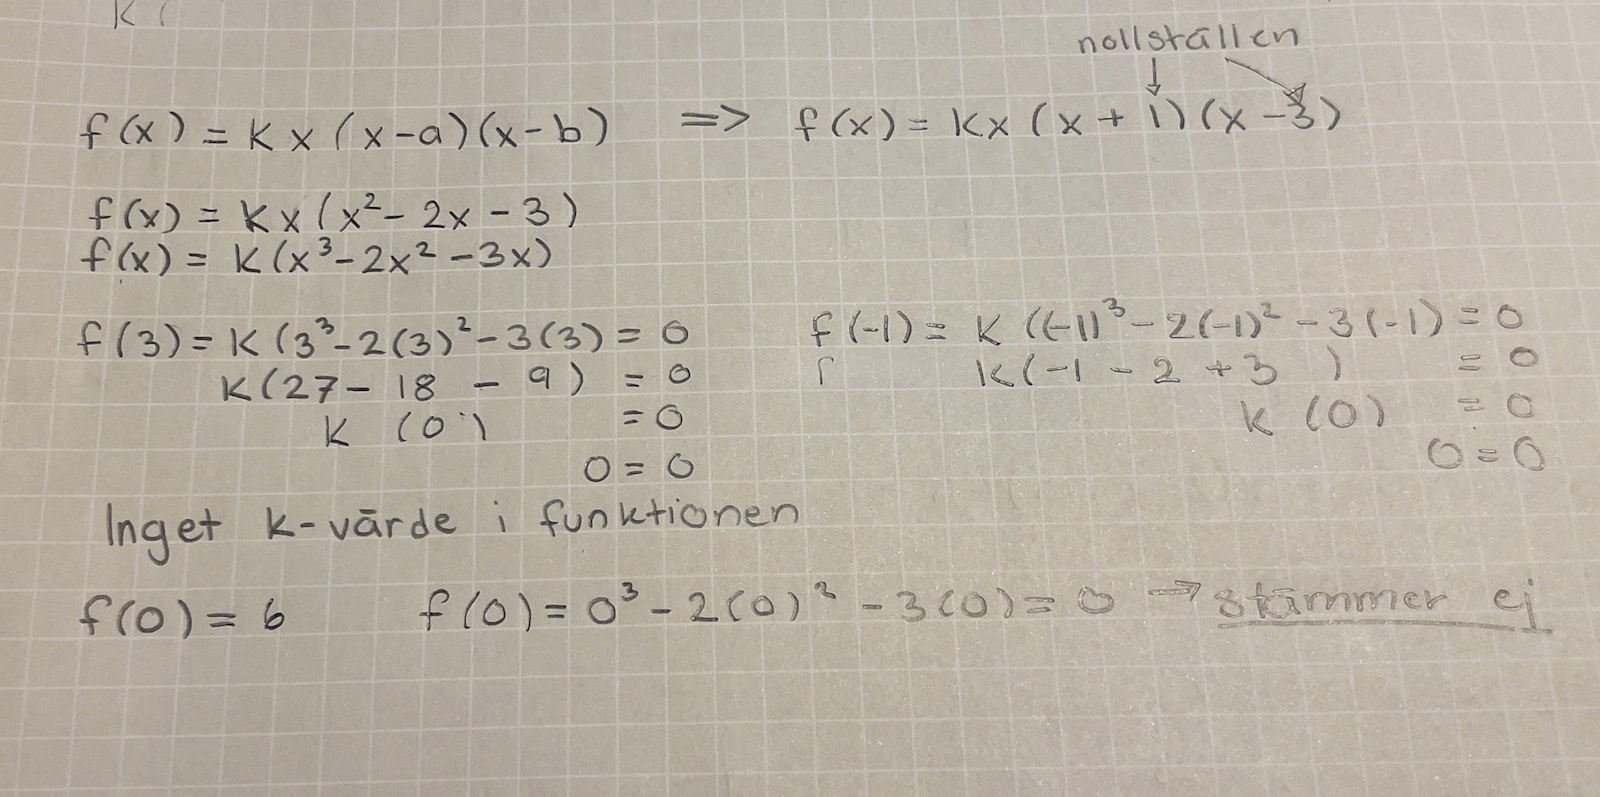 K (
nollställen
f(x) = Kx(x-a)(x-b) => f(x) = Kx(x+1)(x-3)
f(x) = Kx(x²- 2x - 3)
f(x) = K(x³-2x²-3x)
f(3) = K(3³-2(3)²-3(3) = 0 f(-1) = K((-1)³-2(-1)²-3(-1) = 0
K(27- 18 - 9) = 0 K(-1 - 2 + 3 ) = 0
K (0) = 0 K (0) = 0
0 = 0 0 = 0
Inget k-värde i funktionen
f(0) = 6 f(0) = 0³-2(0)²-3(0) = 0 → stämmer ej